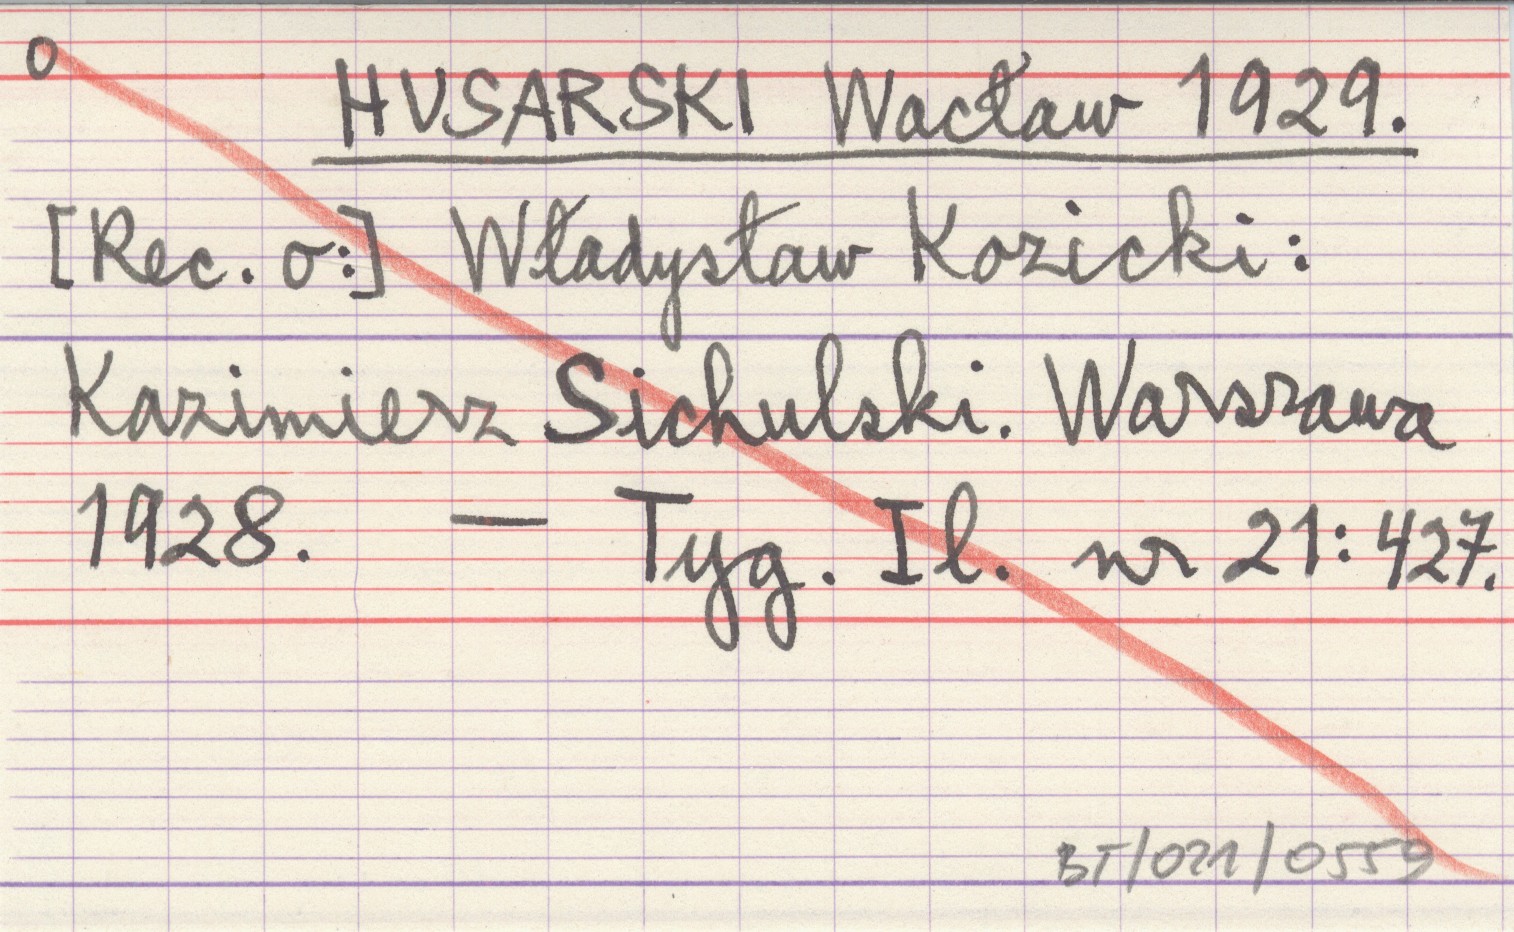 o
HUSARSKI Wacław 1929.
[Rec. o:] Władysław Kozicki:
Kazimierz Sichulski. Warszawa
1928. — Tyg. Il. nr 21: 427.
BT/021/0559